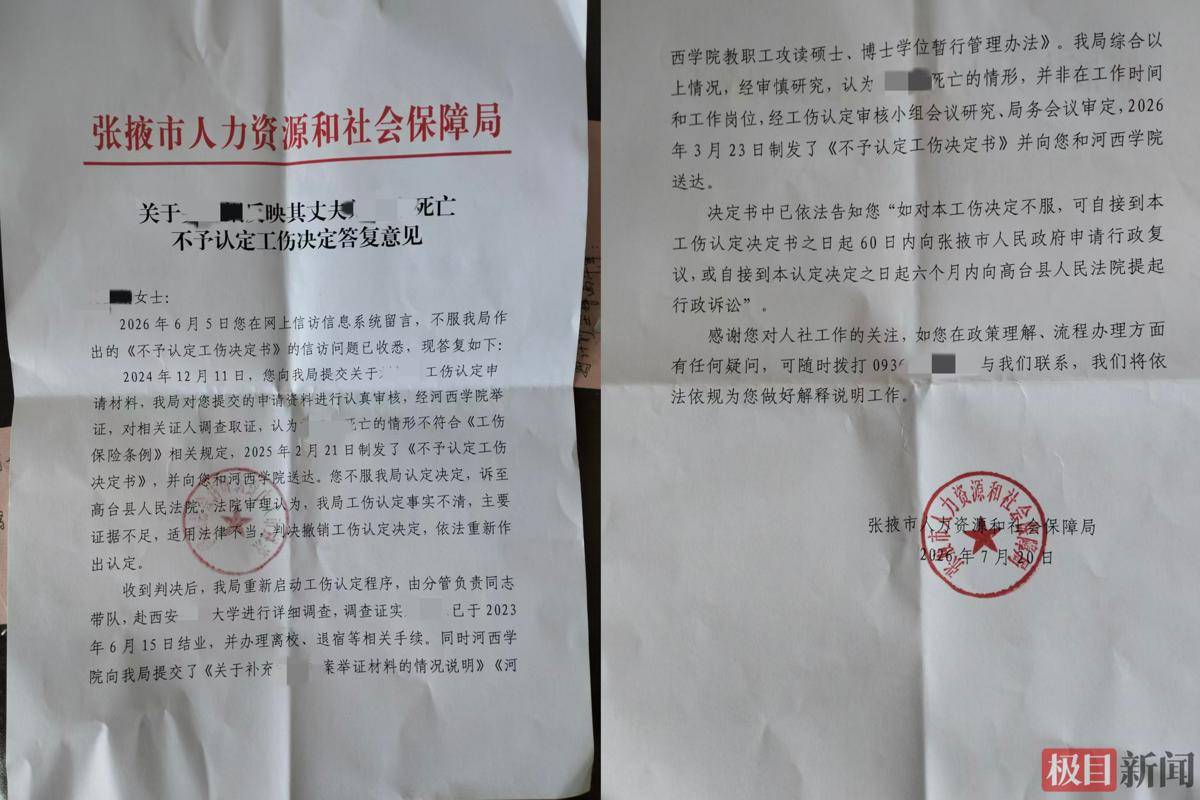 张掖市人力资源和社会保障局
关于 映其丈夫 死亡
不予认定工伤决定答复意见
女士：
2026年6月5日您在网上信访信息系统留言，不服我局作
出的《不予认定工伤决定书》的信访问题已收悉，现答复如下：
2024年12月11日，您向我局提交关于 工伤认定申
请材料，我局对您提交的申请资料进行认真审核，经河西学院举
证，对相关证人调查取证，认为 死亡的情形不符合《工伤
保险条例》相关规定，2025年2月21日制发了《不予认定工伤
决定书》，并向您和河西学院送达。您不服我局认定决定，诉至
高台县人民法院。法院审理认为，我局工伤认定事实不清，主要
证据不足，适用法律不当，判决撤销工伤认定决定，依法重新作
出认定。
收到判决后，我局重新启动工伤认定程序，由分管负责同志
带队，赴西安 大学进行详细调查，调查证实 已于2023
年6月15日结业，并办理离校、退宿等相关手续。同时河西学
院向我局提交了《关于补充 案举证材料的情况说明》《河
西学院教职工攻读硕士、博士学位暂行管理办法》。我局综合以
上情况，经审慎研究，认为 死亡的情形，并非在工作时间
和工作岗位，经工伤认定审核小组会议研究、局务会议审定，2026
年3月23日制发了《不予认定工伤决定书》并向您和河西学院
送达。
决定书中已依法告知您“如对本工伤决定不服，可自接到本
工伤认定决定书之日起60日内向张掖市人民政府申请行政复
议，或自接到本认定决定之日起六个月内向高台县人民法院提起
行政诉讼”。
感谢您对人社工作的关注，如您在政策理解、流程办理方面
有任何疑问，可随时拨打0936 与我们联系，我们将依
法依规为您做好解释说明工作。
张掖市人力资源和社会保障局
2026年7月 0日
张掖市人力资源和社会保障局
极目新闻